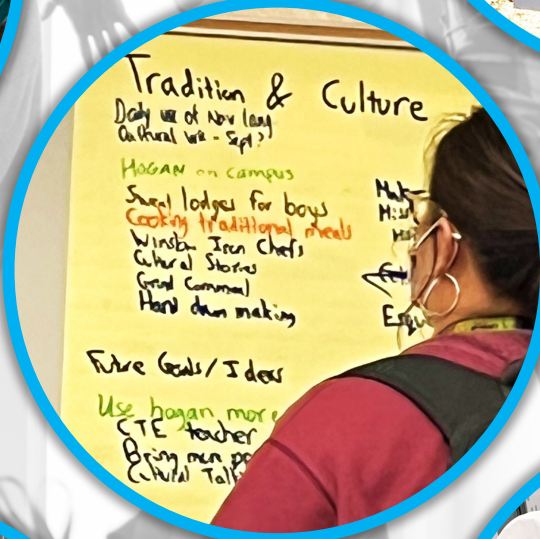 Tradition & Culture
Daily use of Nav lang
Cultural wk - Sept?
HOGAN on campus
Sweat lodges for boys
Cooking traditional meals
Winslow Iron Chefs
Cultural Stories
Grind Cornmeal
Hand drum making
Future Goals/Ideas
Use hogan more
CTE teacher
Bring more
Cultural